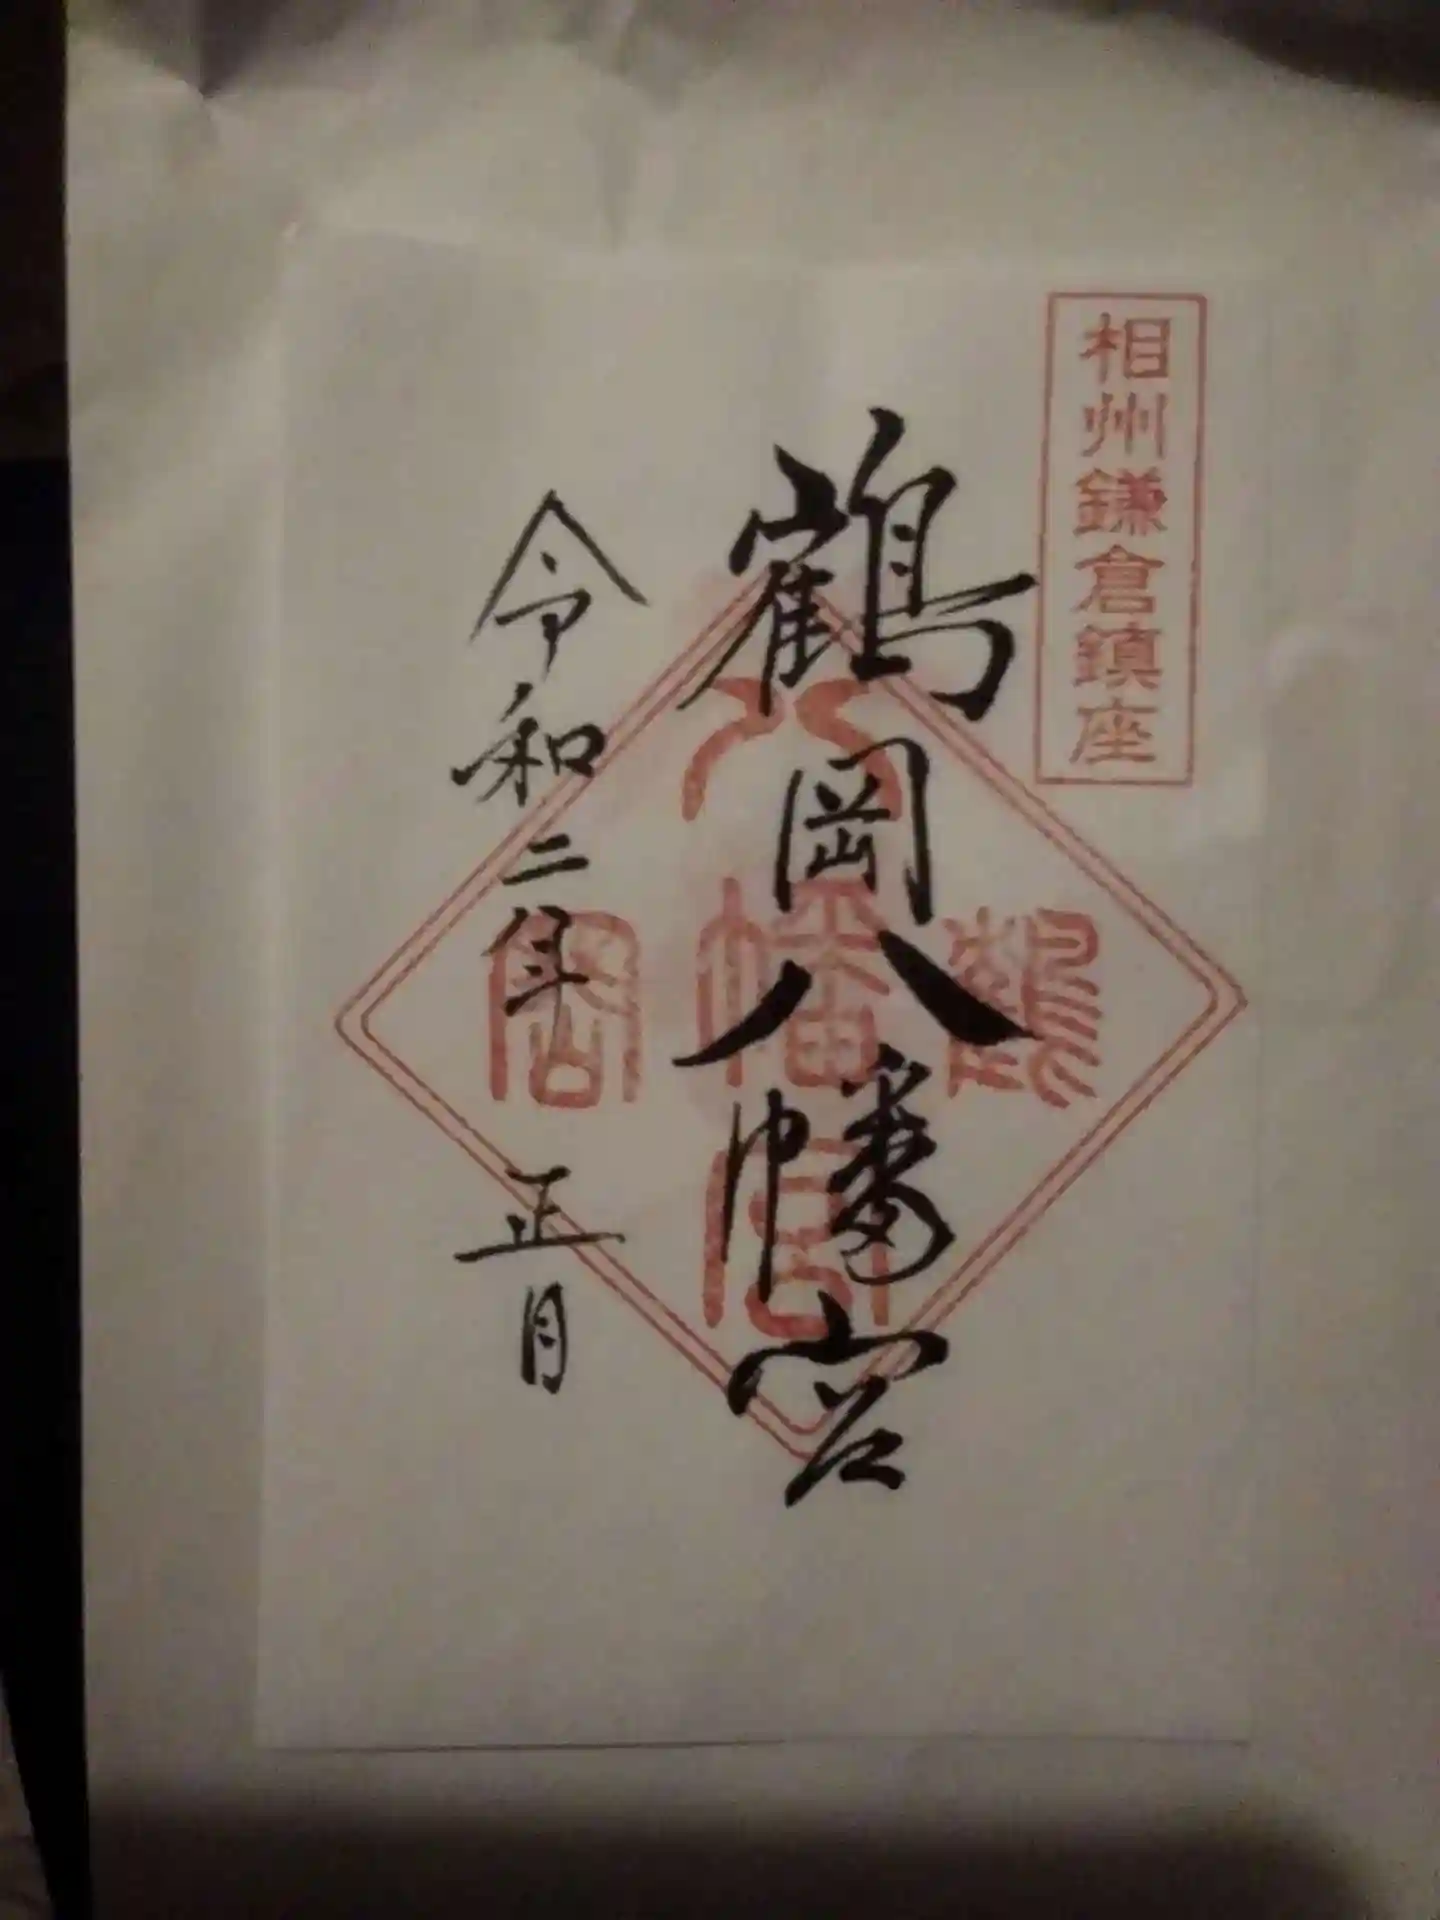 相州鎌倉鎮座
鶴岡八幡宮
令和二年 正月
八
鶴幡岡
宮